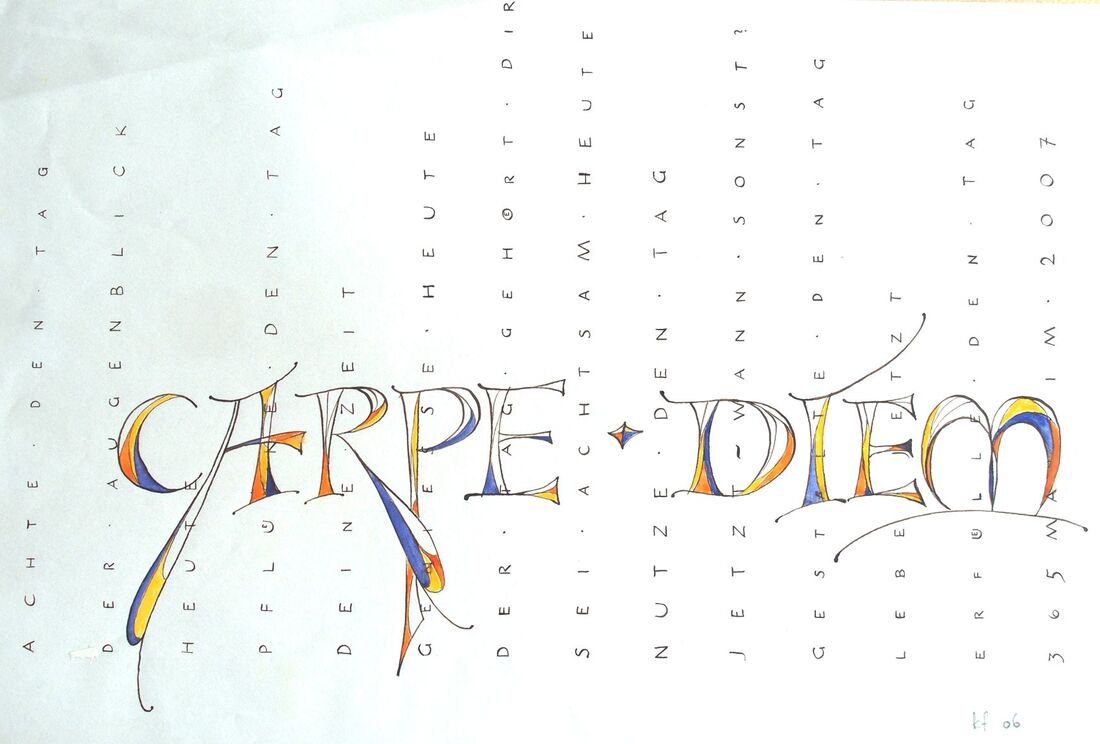 CARPE DIEM
ACHTE · DEN · TAG
DER · AUGENBLICK
HEUTE
PFLÜCKE · DEN · TAG
DEINE · ZEIT
GENIESSE · HEUTE
DER · TAG · GEHÖRT · DIR
SEI · ACHTSAM · HEUTE
NUTZE · DEN · TAG
JETZT ~ WANN · SONST?
GESTALTE · DEN · TAG
LEBE JETZT
ERFÜLLE · DEN · TAG
365 MAL IM · 2007
kf 06